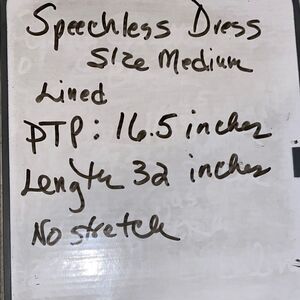 Speechless Dress
Size Medium
Lined
PTP: 16.5 inches
Length 32 inches
No stretch